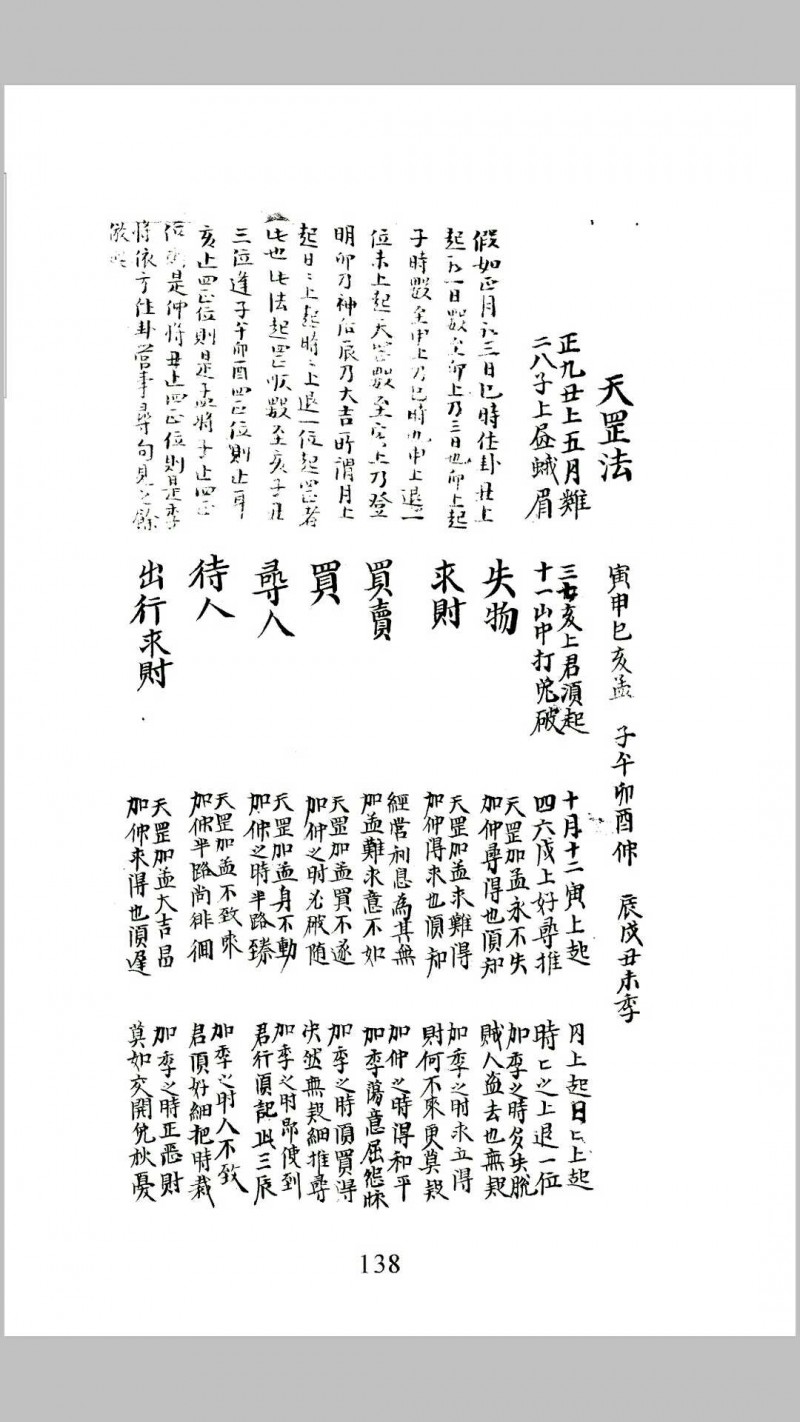 天罡法
寅申巳亥孟 子午卯酉仲 辰戌丑未季
正九丑上五月難
二八子上昼蛾眉
三七亥上君須起
十一山中打兔破
十月十二寅上起
四六戌上好尋推
月上起日日上起
時時之上退一位
假如正月初三日巳時佳卦丑上
起初一日數至卯上乃三日也卯上起
子時數至申上乃巳時也申上退一
位未上起天罡數至亥上乃登
明卯乃神后辰乃大吉所謂月上
起日日上起時時上退一位起罡者
此也此法起罡順數至亥子丑
三位逢子午卯酉四正位則止耳
亥止四正位則是孟將子止四正
位則是仲將丑止四正位則是季
將依方住卦营事尋句見之餘
倣此
失物
天罡加孟永不失
加仲尋得也須知
加季之時多失脫
賊人盗去也無疑
求財
天罡加孟求難得
加仲得求也須知
加季之时求立得
財何不來更莫疑
買賣
經营利息為其無
加孟難求意不如
加仲之時得和平
加季蕩意屈
買
天罡加孟買不遂
加仲之时必破随
加季之時須買得
决然無疑細推尋
尋人
天罡加孟身不動
加仲之時半路臻
加季之时即使到
君行須記此三辰
待人
天罡加孟不致來
加仲半路尚徘徊
加季之时人不致
君須好細把時裁
出行求財
天罡加孟大吉昌
加仲求得也須遲
加季之時正恶財
莫如交開免愁憂
138